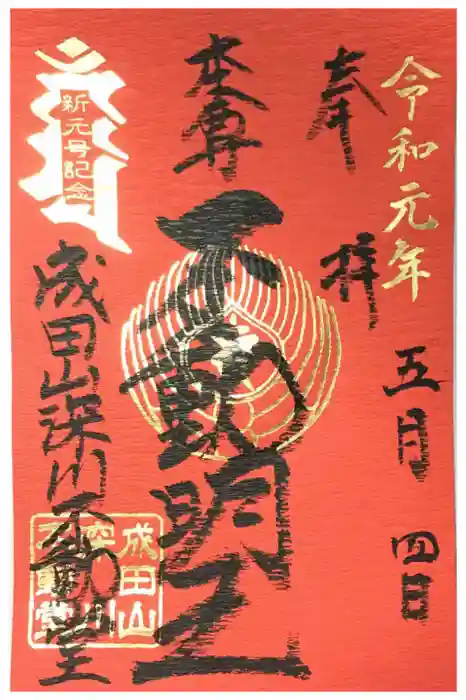 令和元年
五月四日
奉拝
本尊
不動明王
新元号記念
成田山深川不動堂
成田山
深川
不動堂